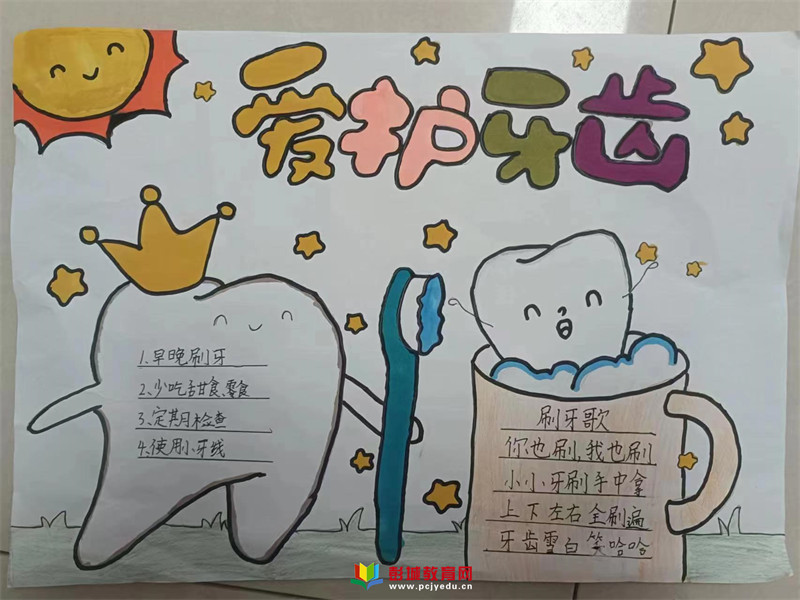 爱护牙齿
1、早晚刷牙
2、少吃甜食、零食
3、定期检查
4、使用小牙线
刷牙歌
你也刷,我也刷
小小牙刷手中拿
上下左右全刷遍
牙齿雪白笑哈哈
彭城教育网
www.pcjyedu.cn